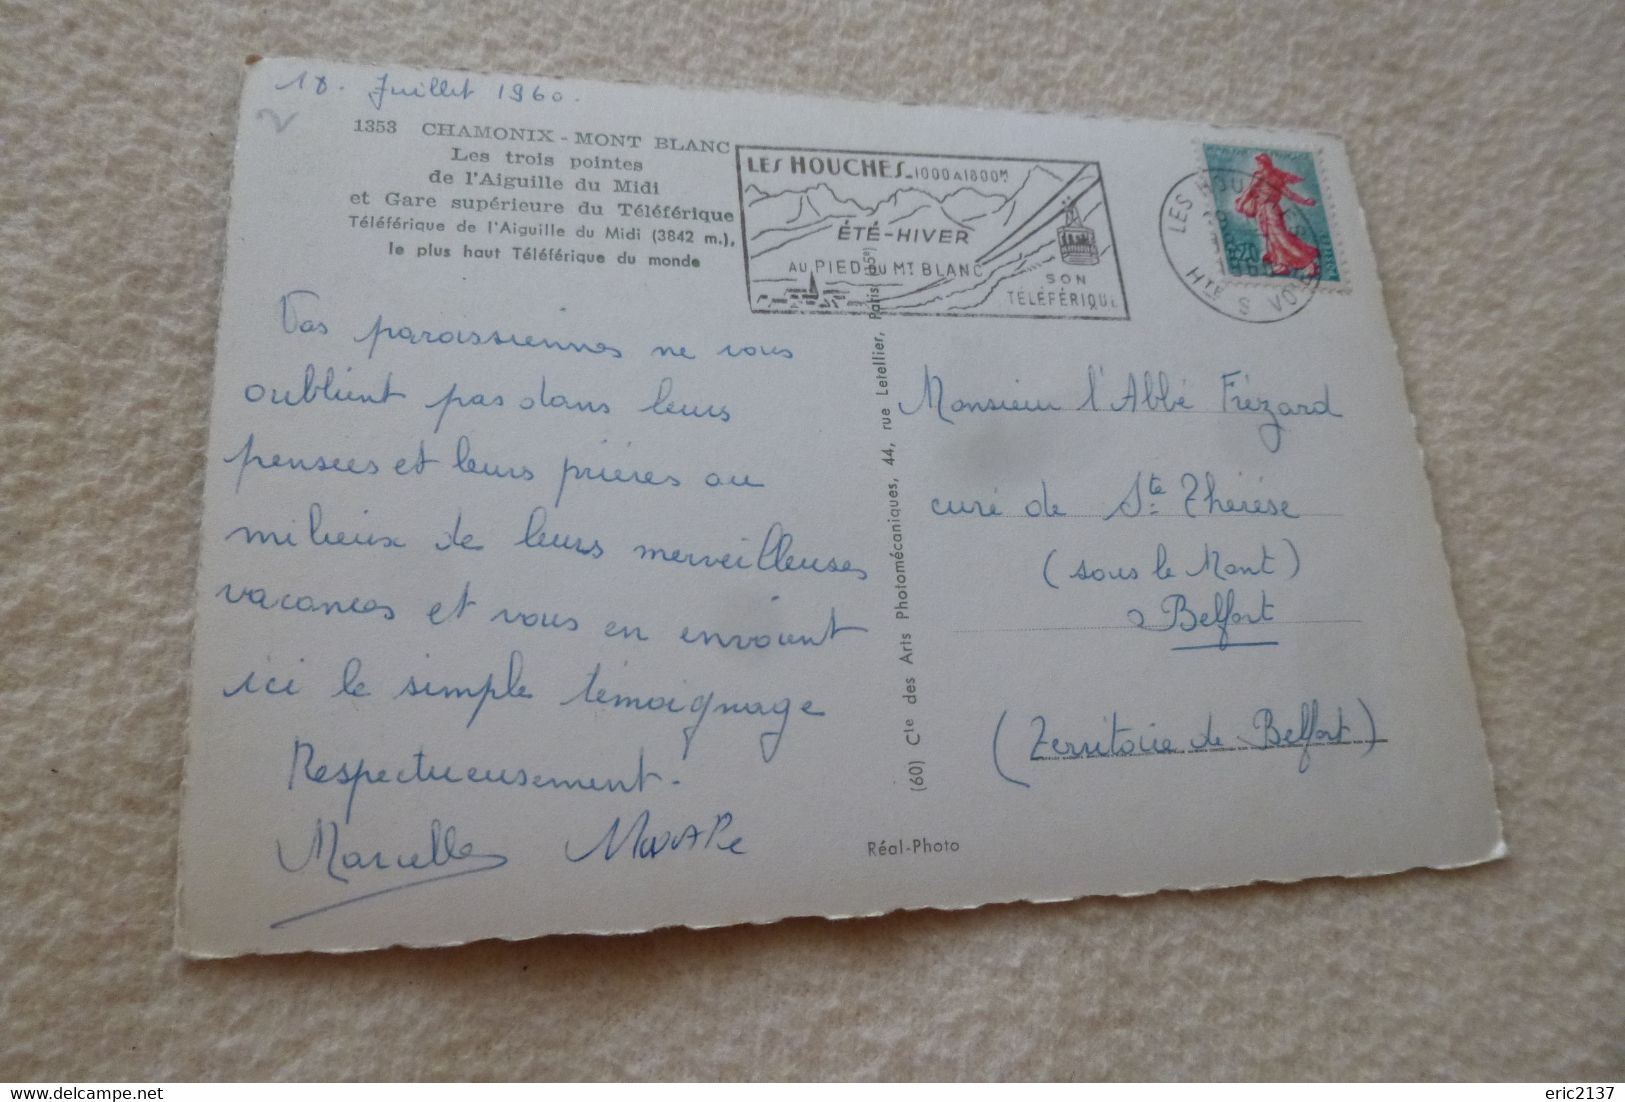 18. Juillet 1960.
1353 CHAMONIX - MONT BLANC
Les trois pointes
de l'Aiguille du Midi
et Gare supérieure du Téléférique
Téléférique de l'Aiguille du Midi (3842 m.),
le plus haut Téléférique du monde
LES HOUCHES-1000 A 1800M
ÉTÉ-HIVER
AU PIED DU MT BLANC
SON
TÉLÉFÉRIQUE
LES HOUCHES
1960
HTE S VOIE
0,20
Vos paroissiennes ne vous
oublient pas dans leurs
pensées et leurs prières au
milieux de leurs merveilleuses
vacances et vous en envoient
ici le simple témoignage
Respectueusement.
Marcelle
(60) Cie des Arts Photomécaniques, 44, rue Letellier, Paris (15e)
Réal-Photo
Monsieur l'Abbé Frézard
curé de Ste Thérèse
(sous le Mont)
à Belfort
(Territoire de Belfort)
eric2137
delcampe.net